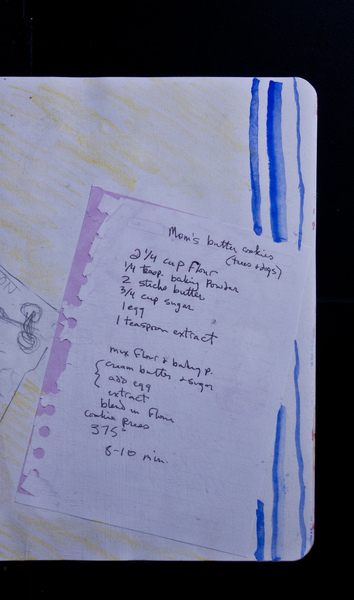 Mom's butter cookies
(trees + dogs)
2 1/4 cup flour
1/4 teasp. baking powder
2 sticks butter
3/4 cup sugar
1 egg
1 teaspoon extract
mix flour & baking p.
cream butter + sugar
add egg
extract
blend in flour
cookie press
375°
8-10 min.